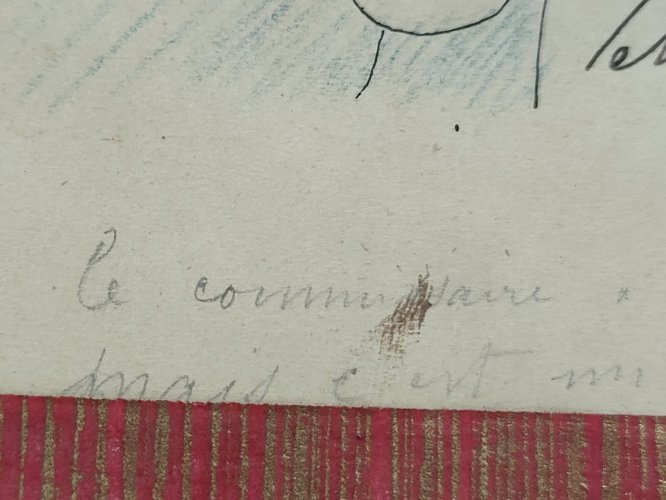 le commissaire
mais c'est un